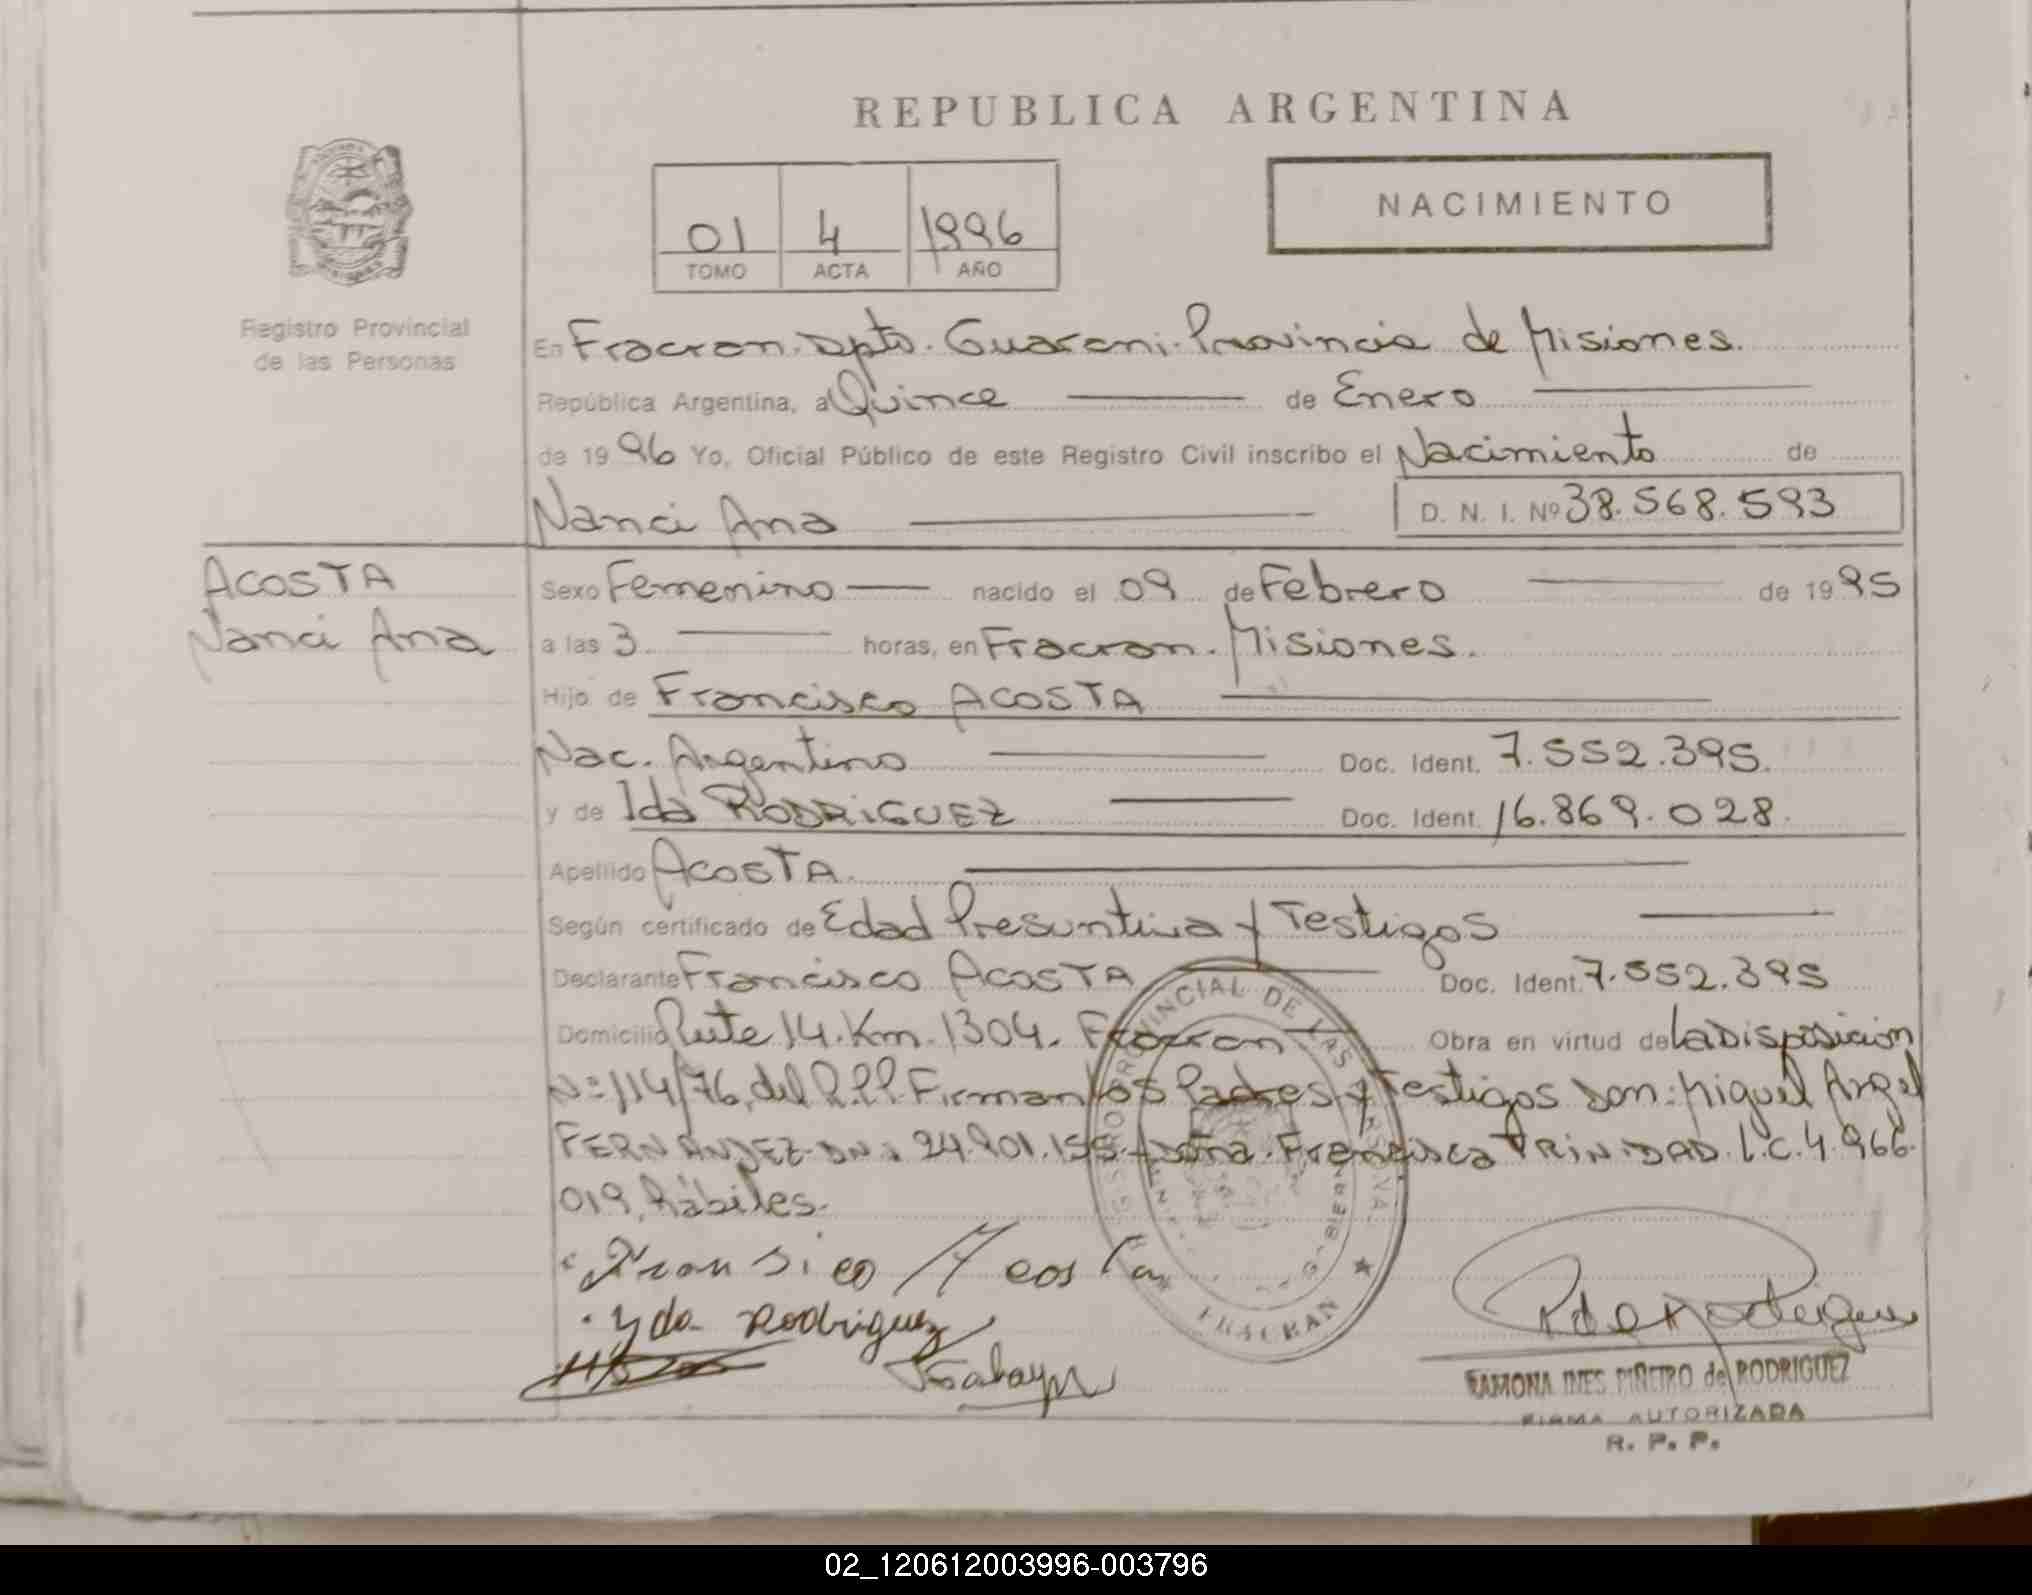 REPUBLICA ARGENTINA
01 4 1996
TOMO ACTA AÑO
NACIMIENTO
Registro Provincial
de las Personas
En Fracran. Dpto. Guarani. Provincia de Misiones.
República Argentina, a Quince de Enero
de 1996 Yo, Oficial Público de este Registro Civil inscribo el Nacimiento de
Nanci Ana D. N. I. Nº 38.568.593
ACOSTA
Nanci Ana
Sexo Femenino nacido el 09 de Febrero de 1995
a las 3 horas, en Fracran. Misiones.
Hijo de Francisco ACOSTA
Nac. Argentino Doc. Ident. 7.552.395.
y de Ida RODRIGUEZ Doc. Ident. 16.869.028.
Apellido ACOSTA.
Según certificado de Edad Presuntiva y Testigos
Declarante Francisco ACOSTA Doc. Ident. 7.552.395
Domicilio Ruta 14. Km. 1304. Fracran Obra en virtud de La Disposición
Nº 114/76, del R.P.P. Firman los Padres y Testigos Don: Miguel Angel
FERNANDEZ-DN: 24.901.155. y Doña. Francisca TRINIDAD. L.C. 4.966.
019, hábiles.
Fransico Acosta
Yda Rodriguez
PROVINCIAL DE LAS PERSONAS
FRACRAN
RAMONA INES PIÑEIRO de RODRIGUEZ
FIRMA AUTORIZADA
R. P. P.
02_120612003996-003796